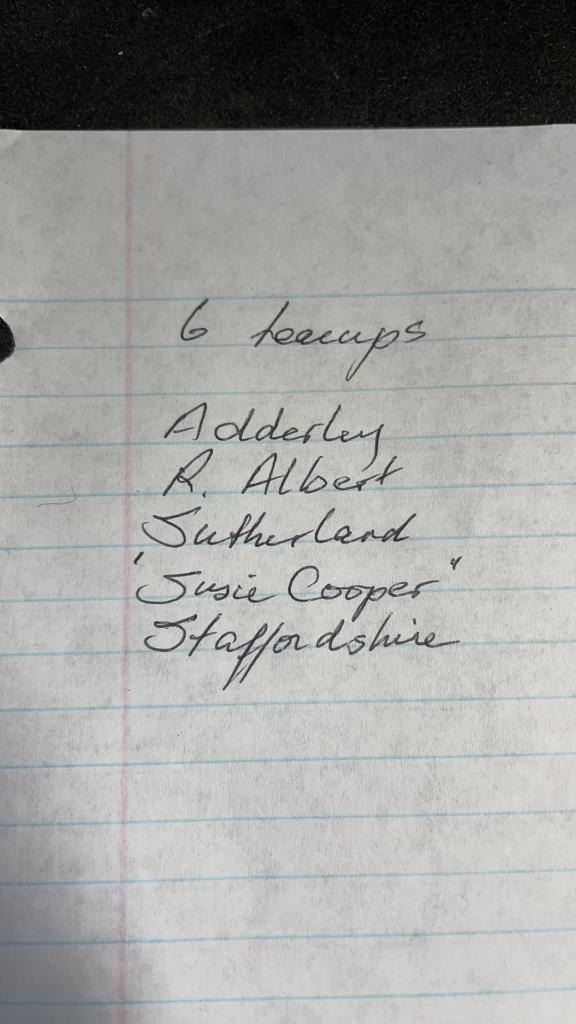 6 teacups
Adderley
R. Albert
Sutherland
"Susie Cooper"
Staffordshire